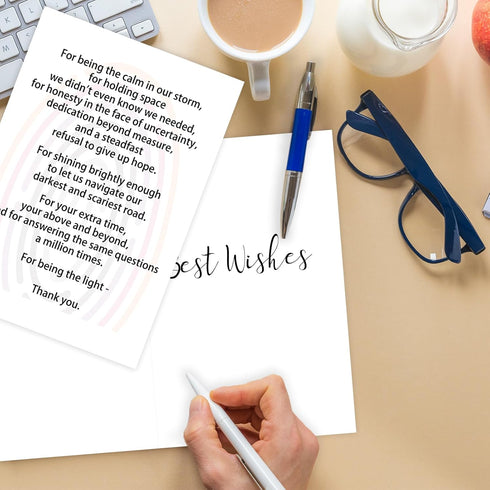 For being the calm in our storm,
for holding space
we didn't even know we needed,
for honesty in the face of uncertainty,
dedication beyond measure,
and a steadfast
refusal to give up hope.
For shining brightly enough
to let us navigate our
darkest and scariest road.
For your extra time,
your above and beyond,
for answering the same questions
a million times.
For being the light -
Thank you.
Best Wishes